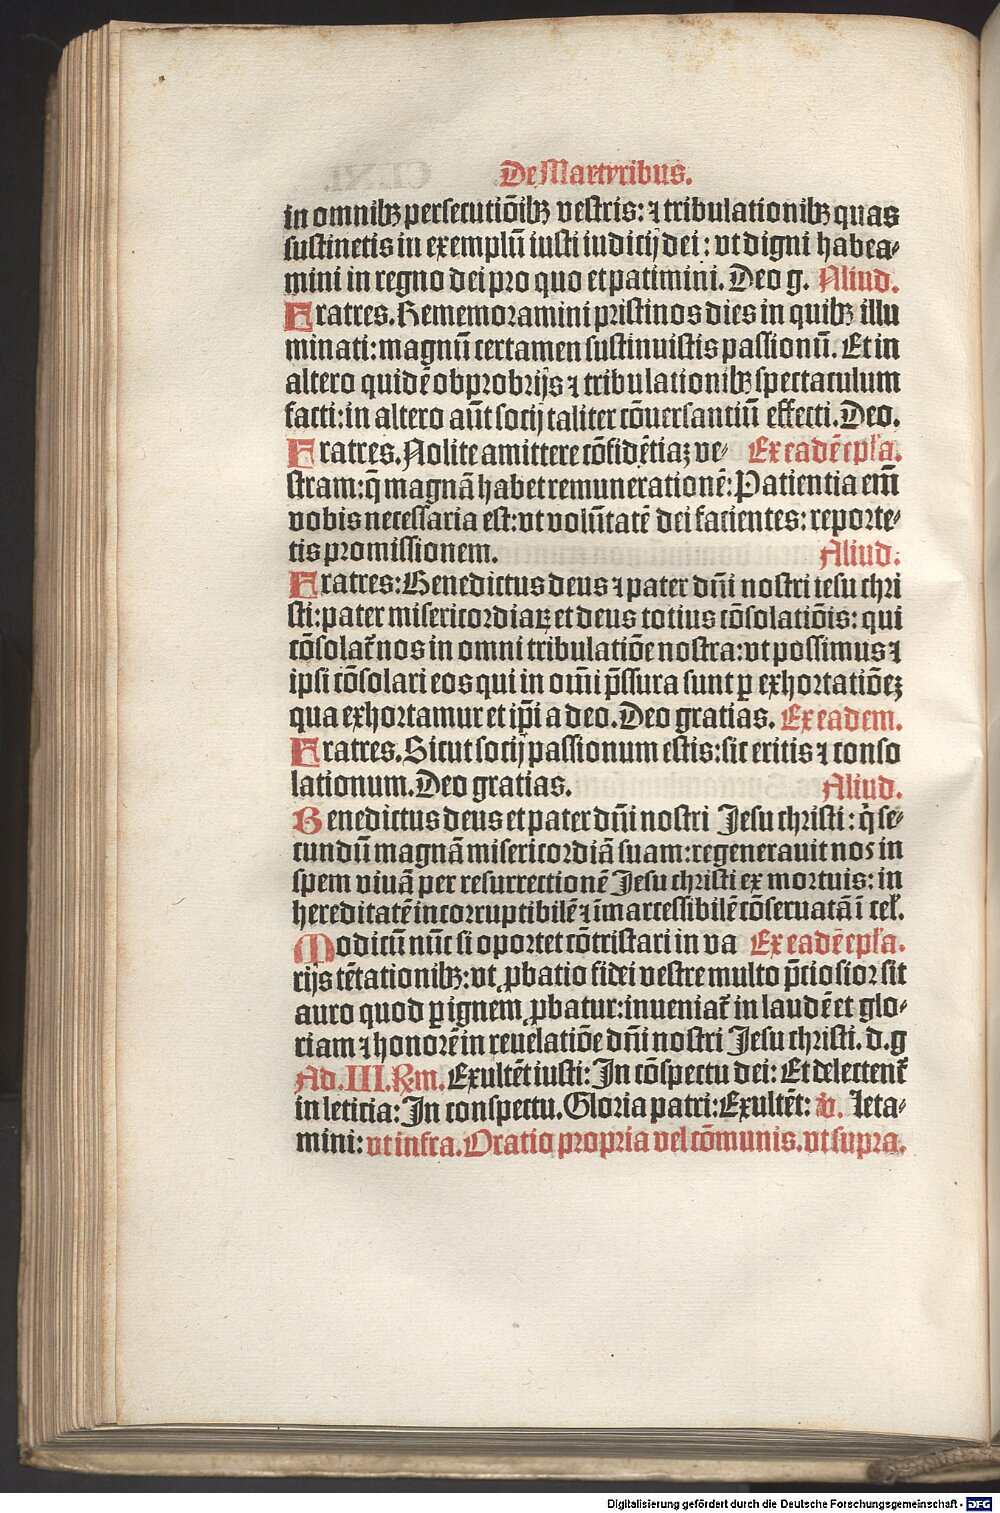 De Martyribus.
in omnibꝫ persecutiōibꝫ vestris: ⁊ tribulationibꝫ quas
sustinetis in exemplū iusti iudicij dei: vt digni habea⸗
mini in regno dei pro quo et patimini. Deo g. Aliud.
Fratres. Rememoramini pristinos dies in quibꝫ illu
minati: magnū certamen sustinuistis passionū. Et in
altero quidē obprobrijs ⁊ tribulationibꝫ spectaculum
facti: in altero aūt socij taliter cōuersantiū effecti. Deo.
Fratres. Nolite amittere cōfidētiaꝫ ve⸗ Ex eadē epła.
stram: q̄ magnā habet remunerationē: Patientia em̄
vobis necessaria est: vt volūtatē dei facientes: reporte⸗
tis promissionem. Aliud:
Fratres: Benedictus deus ⁊ pater dn̄i nostri iesu chri
sti: pater misericordiaꝝ et deus totius cōsolatiōis: qui
cōsolat᷑ nos in omni tribulatiōe nostra: vt possimus ⁊
ipsi cōsolari eos qui in om̄i p̄ssura sunt ꝑ exhortatiōeꝫ
qua exhortamur et ip̄i a deo. Deo gratias. Ex eadem.
Fratres. Sicut socij passionum estis: sic eritis ⁊ conso
lationum. Deo gratias. Aliud.
Benedictus deus et pater dn̄i nostri Jesu christi: q̇ se⸗
cundū magnā misericordiā suam: regenerauit nos in
spem viuā per resurrectionē Jesu christi ex mortuis: in
hereditatē incorruptibilē ⁊ īmarcessibilē cōseruatā ī cel᷑.
Modicū nūc si oportet cōtristari in va Ex eadē epła.
rijs tētationibꝫ: vt ꝓbatio fidei vestre multo p̄ciosior sit
auro quod ꝑ ignem ꝓbatur: inueniat᷑ in laudē et glo⸗
riam ⁊ honorē in reuelatiōe dn̄i nostri Jesu christi. d. g
Ad. III. Rm. Exultēt iusti: In cōspectu dei: Et delectent᷑
in leticia: In conspectu. Gloria patri: Exultēt: v̄. Leta⸗
mini: vt infra. Oratio propria vel cōmunis. vt supra.
Digitalisierung gefördert durch die Deutsche Forschungsgemeinschaft - DFG